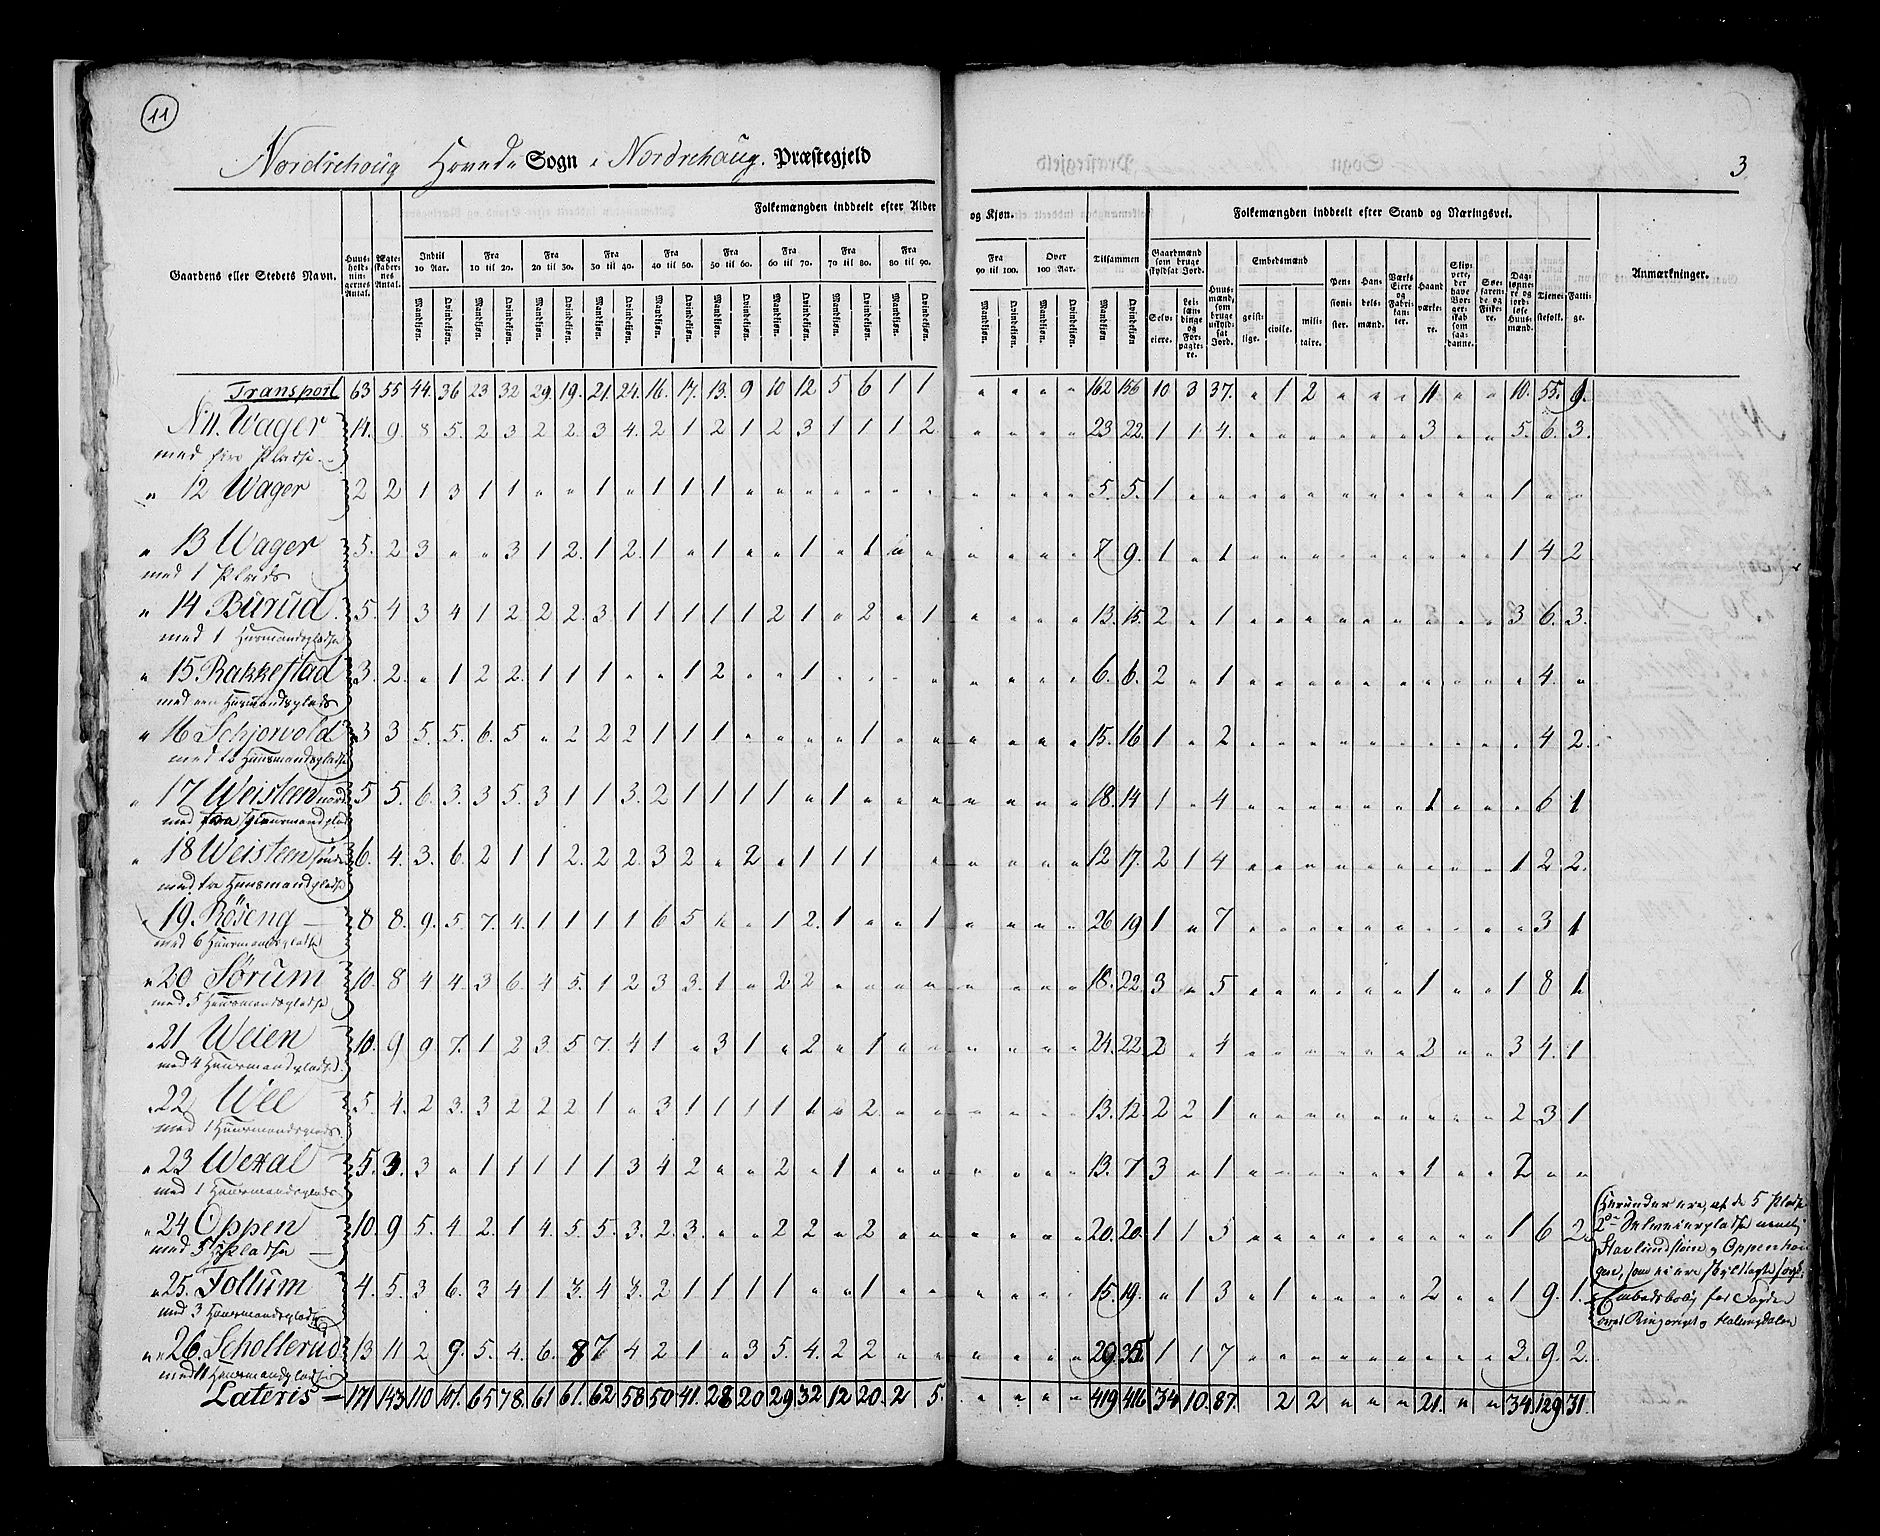 11
Nordrehoug Hoved Sogn i Nordrehaug. Præstegjeld
3
Gaardens eller Stedets Navn.
Huus-holdnin-gernes Antal.
Ægte-skaber-nes Antal.
Folkemængden inddeelt efter Alder og Kjøn.
Indtil 10 Aar. Fra 10 til 20. Fra 20 til 30. Fra 30 til 40. Fra 40 til 50. Fra 50 til 60. Fra 60 til 70. Fra 70 til 80. Fra 80 til 90. Fra 90 til 100. Over 100 Aar. Tilsammen
Mandkjøn. Qvindekjøn.
Folkemængden inddeelt efter Stand og Næringsvei.
Gaardmænd som bruge skyldsat Jord. Selv-eiere. Lei-læn-dinge og For-pagte-re.
Huus-mænd, som bruge uskyld-sat Jord.
Embedsmænd geist-lige. civile. mili-taire.
Pen-sioni-ster. Han-dels-mænd. Værks Eiere og Fabri-kan-ter. Haand værke-re.
Dag-lønne-re og jord-løse Huus-mænd. Tjene-stefolk. Fatti-ge.
Anmærkninger.
Transport 63 55 44 36 23 32 29 19 21 24 16 17 13 9 10 12 5 6 1 1 " " " " 162 156 10 3 37 " 1 2 " " " 11 " " 10 55 9
N 11. Wager 14 9 8 5 2 3 2 2 3 4 2 1 2 1 2 3 1 1 1 2 " " " " 23 22 1 1 4 " " " " " " 3 " " 5 6 3
med fire Pladse
" 12 Wager 2 2 1 3 1 1 " " 1 " 1 1 1 " " " " " " " " " " " 5 5 1 " " " " " " " " " " " 1 " "
" 13 Wager 5 2 3 " " 3 1 2 1 2 1 " 1 " " 1 " 1 " " " " " " 7 9 1 " 1 " " " " " " " " " 1 4 2
med 1 Plads
" 14 Burud 5 4 3 4 1 2 2 2 3 1 1 1 1 1 2 1 " 2 " 1 " " " " 13 15 2 " 1 " " " " " " " " " 3 6 3
med 1 Huusmandsplads
" 15 Rakkestad 3 2 " 1 2 2 1 1 1 " " 1 2 " " 1 " " " " " " " " 6 6 2 " 1 " " " " " " " " " " 4 "
med een Huusmandsplads
" 16 Schjørvold 3 3 5 5 6 5 " 2 2 2 1 1 1 " " " " 1 " " " " " " 15 16 1 " 2 " " " " " " " " " " 4 2
" 17 Weisteen nord 5 5 6 3 3 5 3 1 1 3 2 1 1 1 1 " 1 " " " " " " " 18 14 1 " 4 " " " " " " 1 " " " 6 1
" 18 Weisteen 6 4 3 6 2 1 1 2 2 2 3 2 " 2 " 1 1 1 " " " " " " 12 17 2 1 4 " " " " " " " " " 1 2 2
" 19. Röseng 8 8 9 5 7 4 1 1 1 1 6 5 " " 1 2 1 " " 1 " " " " 26 19 1 " 7 " " " " " " " " " " 3 1
med 6 Huusmandspladse
" 20 Sørum 10 8 4 4 3 6 4 5 1 2 3 3 1 " 2 2 " " " " " " " " 18 22 3 " 5 " " " " " " 1 " " 1 8 1
med 5 Huusmandspladse
" 21 Weien 10 9 9 7 1 2 3 5 7 4 1 " 3 1 " 2 " 1 " " " " " " 24 22 2 " 4 " " " " " " 2 " " 3 4 1
med 4 Huusmandpladse
" 22 Wee 5 4 2 3 3 2 2 2 1 " 3 1 1 1 1 1 " 2 " " " " " " 13 12 2 2 1 " " " " " " " " " 2 3 1
med 1 Huusmandsplads
" 23 Wexal 5 3 3 " 1 1 1 1 1 3 4 2 " " 2 " 1 " " " " " " " 13 7 3 " 1 " " " " " " 1 " " 2 " "
med 1 Huusmandsplads
" 24 Oppen 10 9 5 4 2 1 4 5 5 3 2 3 " " 2 2 " 2 " " " " " " 20 20 1 1 5 " " " " " " " " " 1 6 2
med 5 Pladse
" 25. Follum 4 5 3 6 3 4 1 3 4 3 2 1 1 1 1 " " 1 " " " " " " 15 19 " 1 3 " 1 " " " " 2 " " 1 9 1
med 3 Huusmandspladse
" 26. Schollerud 13 11 2 9 5 4 6 8 7 4 2 1 " 3 5 4 2 2 " " " " " " 29 35 1 1 7 " " " " " " " " " 3 9 2
med 11 Huusmandpladse
Lateris 171 143 110 101 65 78 61 61 62 58 50 41 28 20 29 32 12 20 2 5 " " " " 419 416 34 10 87 2 2 " " " 21 " " 34 129 31
Herunder ere, af de 5 Pladse
2de Selveierpladse nemlig
Embedsbolig for Fogden
over Ringeriget og Hallingdalen